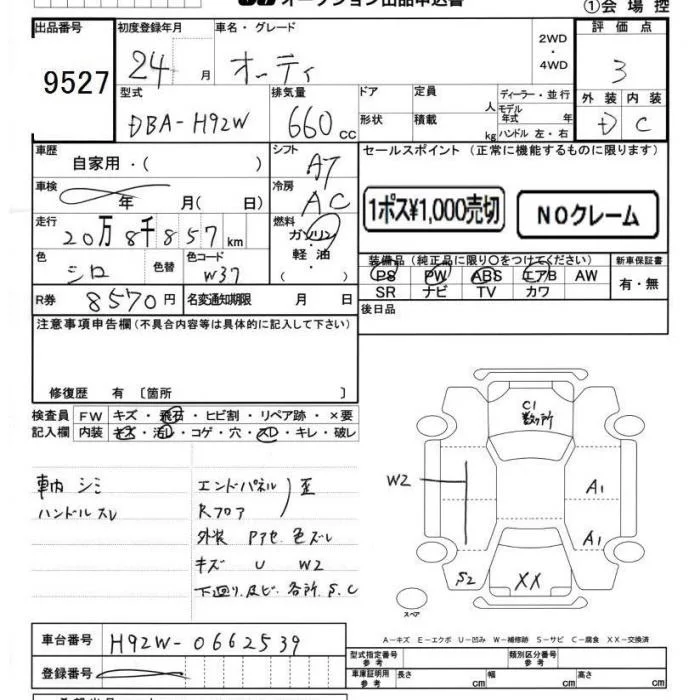 オークション出品申込書
①会場控
出品番号 初度登録年月 車名・グレード 2WD・4WD 評価点
9527 24 月 オーティ 3
型式 排気量 ドア 定員 人 ディーラー・並行 外装 内装
モデル年式 年
DBA-H92W 660 cc 形状 積載 kg ハンドル 左・右 D C
車歴 自家用・( ) シフト AT セールスポイント (正常に機能するものに限ります)
車検 年 月( 日) 冷房 AC
1ポス¥1,000売切 NOクレーム
走行 20万8千857km 燃料 ガソリン・軽油・( )
色 シロ 色替 色コード W37
装備品(純正品に限り○をつけてください) 新車保証書
PS PW ABS エアB AW 有・無
SR ナビ TV カワ
R券 8570円 名変通知期限 月 日
後日品
注意事項申告欄(不具合内容等は具体的に記入して下さい)
修復歴 有 〔箇所 〕
検査員 FW キズ・飛石・ヒビ割・リペア跡・×要
記入欄 内装 キズ・汚レ・コゲ・穴・スレ・キレ・破レ
車内 シミ
ハンドル スレ
エンドパネル
Rフロア
歪
外装 Pアセ 色ズレ
キズ U W2
下回リ及ビ各所 S.C
C1
数ヶ所
W2
A1
A1
S2
XX
スペア
A-キズ E-エクボ U-凹み W-補修跡 S-サビ C-腐食 XX-交換済
車台番号 H92W-0662539
型式指定番号 参考 類別区分番号 参考
登録番号
車庫証明用 参考 長さ cm 幅 cm 高さ cm